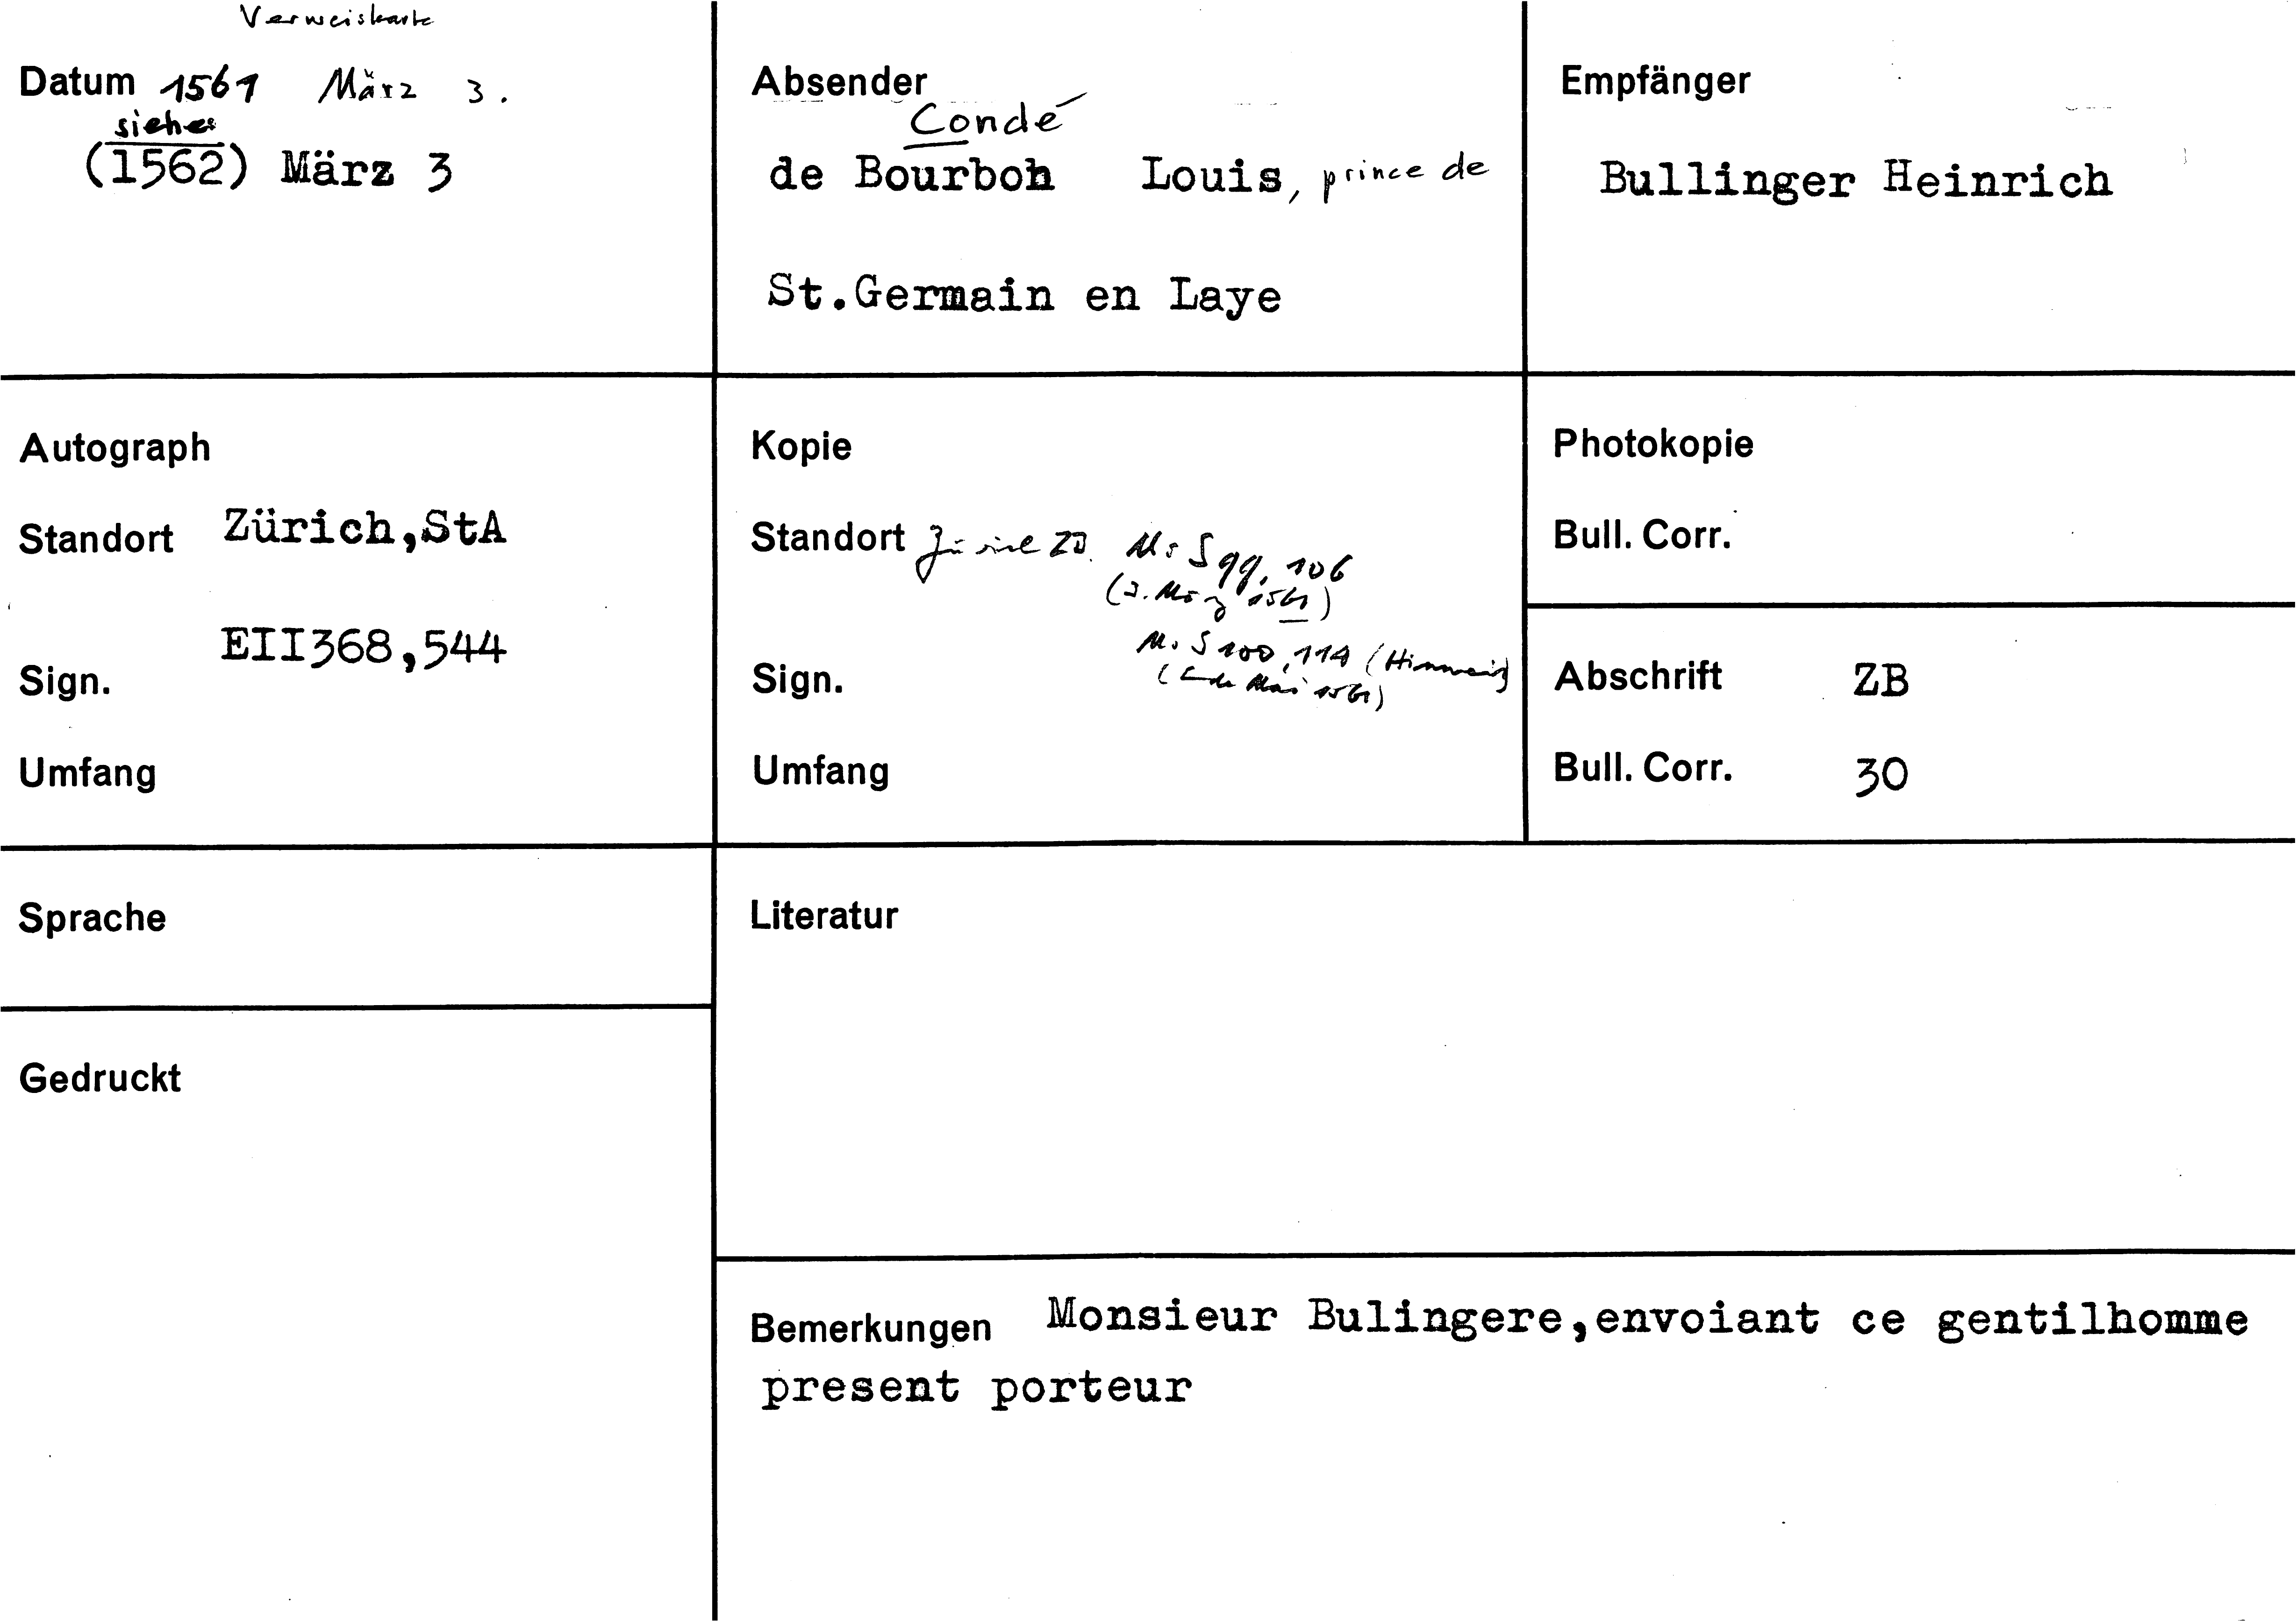 Verweiskarte
Datum 1561 März 3.
siehe
(1562) März 3
Absender
Condé
de Bourbon Louis, prince de
St.Germain en Laye
Empfänger
Bullinger Heinrich
Autograph
Standort Zürich,StA
Sign. EII368,544
Umfang
Kopie
Standort Zürich ZB. Ms S 99, 106
(3. März 1561)
Ms S 100, 114 (Hinweis)
(Ende Mai 1561)
Sign.
Umfang
Photokopie
Bull. Corr.
Abschrift ZB
Bull. Corr. 30
Sprache
Gedruckt
Literatur
Bemerkungen Monsieur Bulingere,envoiant ce gentilhomme
present porteur